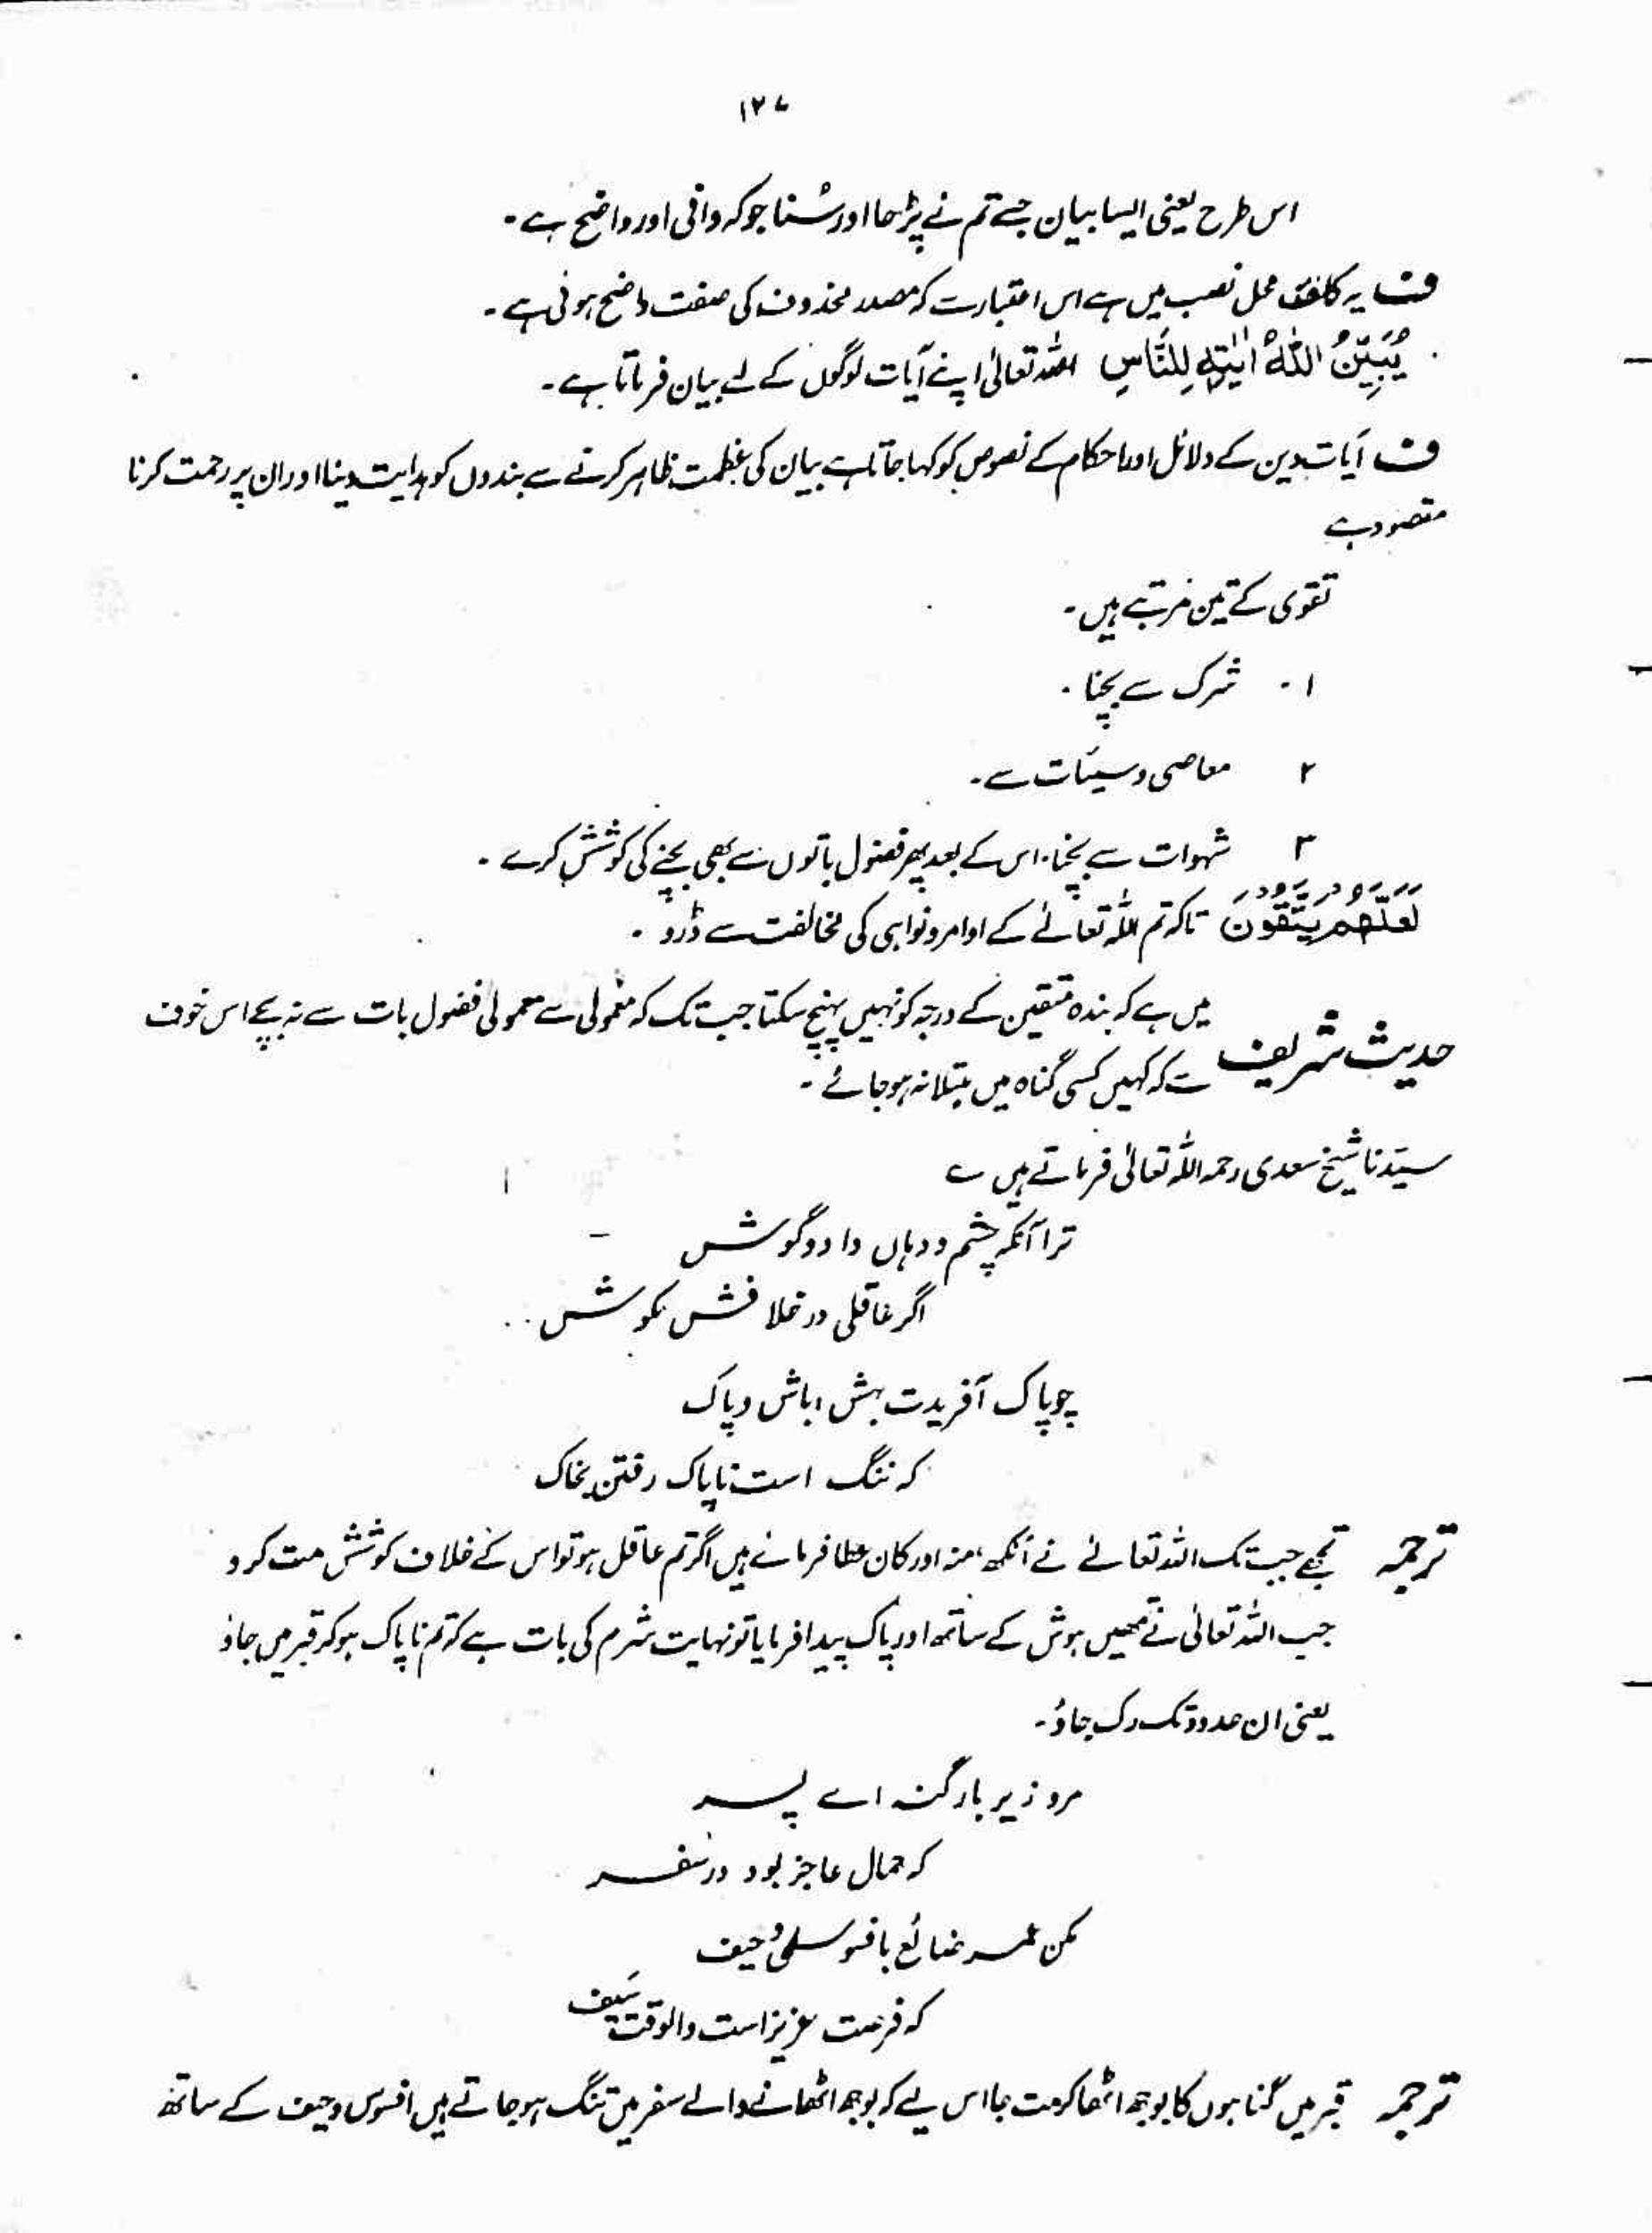 ۱۲۷
اس طرح یعنی ایسا بیان جسے تم نے پڑھا اور سُنا جو کہ وافی اور واضح ہے۔
ف یہ کاف محل نصب میں ہے اس اعتبار سے کہ مصدر محذوف کی صفت واضح ہوئی ہے۔
یُبَیِّنُ اللّٰہُ اٰیٰتِہٖ لِلنَّاسِ اللہ تعالیٰ اپنے آیات لوگوں کے لے بیان فرماتا ہے۔
ف آیات دین کے دلائل اور احکام کے نصوص کو کہا جاتا ہے بیان کی عظمت ظاہر کرنے سے بندوں کو ہدایت دینا اور ان پر رحمت کرنا
مقصود ہے
تقوی کے تین مرتبے ہیں۔
۱۔ شرک سے بچنا۔
۲ معاصی و سیئات سے۔
۳ شہوات سے بچنا۔ اس کے بعد پھر فضول باتوں سے بھی بچنے کی کوشش کرے۔
لَعَلَّهُمْ يَتَّقُوْنَ تاکہ تم اللہ تعالےٰ کے اوامر و نواہی کی مخالفت سے ڈرو۔
حدیث شریف میں ہے کہ بندہ متقین کے درجہ کو نہیں پہنچ سکتا جب تک کہ معمولی سے معمولی فضول بات سے نہ بچے اس خوف
سے کہ کہیں کسی گناہ میں مبتلا نہ ہو جائے۔
سیّدنا شیخ سعدی رحمہ اللہ تعالیٰ فرماتے ہیں ے
ترا آنکہ چشم و دہاں داد و گوش
اگر عاقلی در خلافش مکوش
چو پاک آفریدت بہش باش و پاک
کہ ننگ است ناپاک رفتن بخاک
ترجمہ تجھے جب تک اللہ تعالےٰ نے آنکھ، منہ اور کان عطا فرمائے ہیں اگر تم عاقل ہو تو اس کے خلاف کوشش مت کرو
جب اللہ تعالیٰ نے تمھیں ہوش کے ساتھ اور پاک پیدا فرمایا تو نہایت شرم کی بات ہے کہ تم ناپاک ہو کر قبر میں جاؤ
یعنی ان حدود تک رک جاؤ۔
مرو زیر بار گنہ اے پسر
کہ حمال عاجز بود در سفر
مکن عمر ضائع بافسوس و حیف
کہ فرصت عزیز است والوقت سَیف
ترجمہ قبر میں گناہوں کا بوجھ اٹھا کر مت جا اس لیے کہ بوجھ اٹھانے والے سفر میں تنگ ہو جاتے ہیں افسوس و حیف کے ساتھ